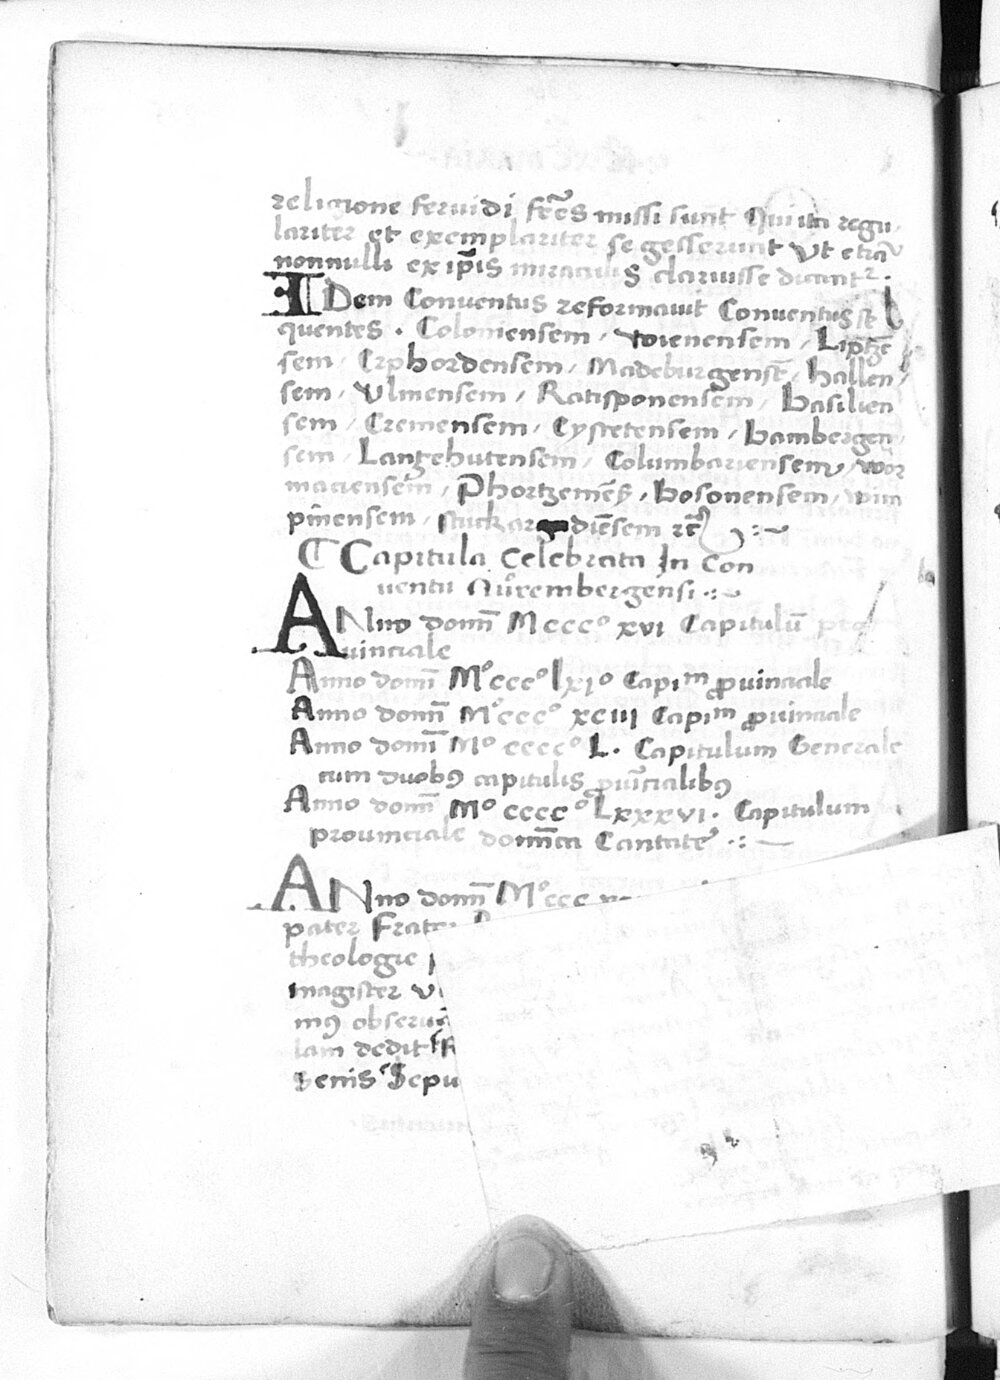 religione feruidi fr̃es missi sunt Qui ita regu
lariter et exemplariter se gesserunt Vt etiã
nonnulli ex ip̃is miraculis claruisse dicantr.
IDem Conuentus reformauit Conuentus se
quentes . Coloniensem / wienensem / Liptzẽ
sem / Erphordensem / Madeburgensẽ / hallen
sem / Vlmensem / Ratisponensem / basilien
sem / Cremensem / Eystetensem / bambergen
sem / Langehutensem / Columbariensem / wor
maciensem / Phortzemẽs / bosonensem / wim
pinensem / stuckar diẽsem rc̃
Capitula Celebrata In Con
uentu Nuͦrembergensi
ANno domī Mcccͦ xvi Capitulū pro
uinciale
Anno domī Mͦcccͦ lxiͦ Capim ꝓuinciale
Anno domī Mͦcccͦ xciii Capim ꝓuinciale
Anno domī Mͦ ccccͦ L. Capitulum Generale
cum duobꝰ capitulis ꝓuīcialibꝰ
Anno domī Mͦ ccccͦ Lxxxvi. Capitulum
prouinciale domīca Cantate
ANno domī Mͦccc
pater Frater
theologie
magister
mꝰ obserua
lam dedit
Senis Sepu